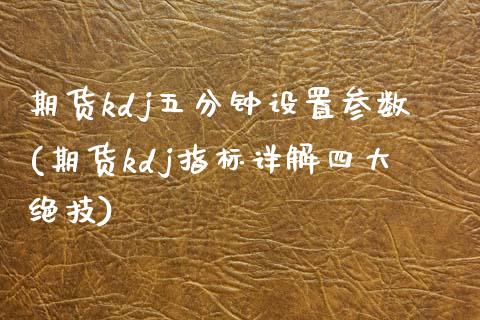 期货kdj五分钟设置参数
(期货kdj指标详解四大
绝技)